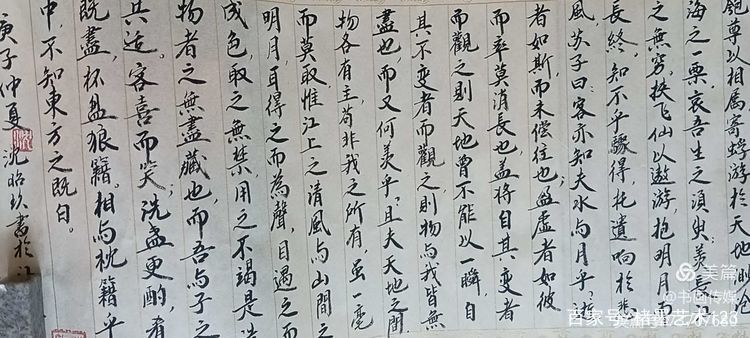 匏尊以相属寄蜉游於天地
海之一粟哀吾生之須臾羨長
之無窮挾飞仙以遨游抱明月而
長終知不乎驟得托遺响於悲
風苏子曰客亦知夫水与月乎
者如斯而未偿往也盈虚者如彼
而卒莫消長也盖将自其变者
而觀之则天地曾不能以一瞬自
其不变者而觀之则物与我皆無
盡也而又何羡乎且夫天地之間
物各有主苟非我之所有虽一毫
而莫取惟江上之清風与山間之
明月耳得之而為聲目遇之而
成色取之無禁用之不竭是造
物者之無盡藏也而吾与子之
共适。客喜而笑洗盏更酌肴
既盡杯盘狼籍。相与枕籍乎
中不知東方之既白。
庚子仲夏沈昭玖書於
美篇
@书画传媒
百家号